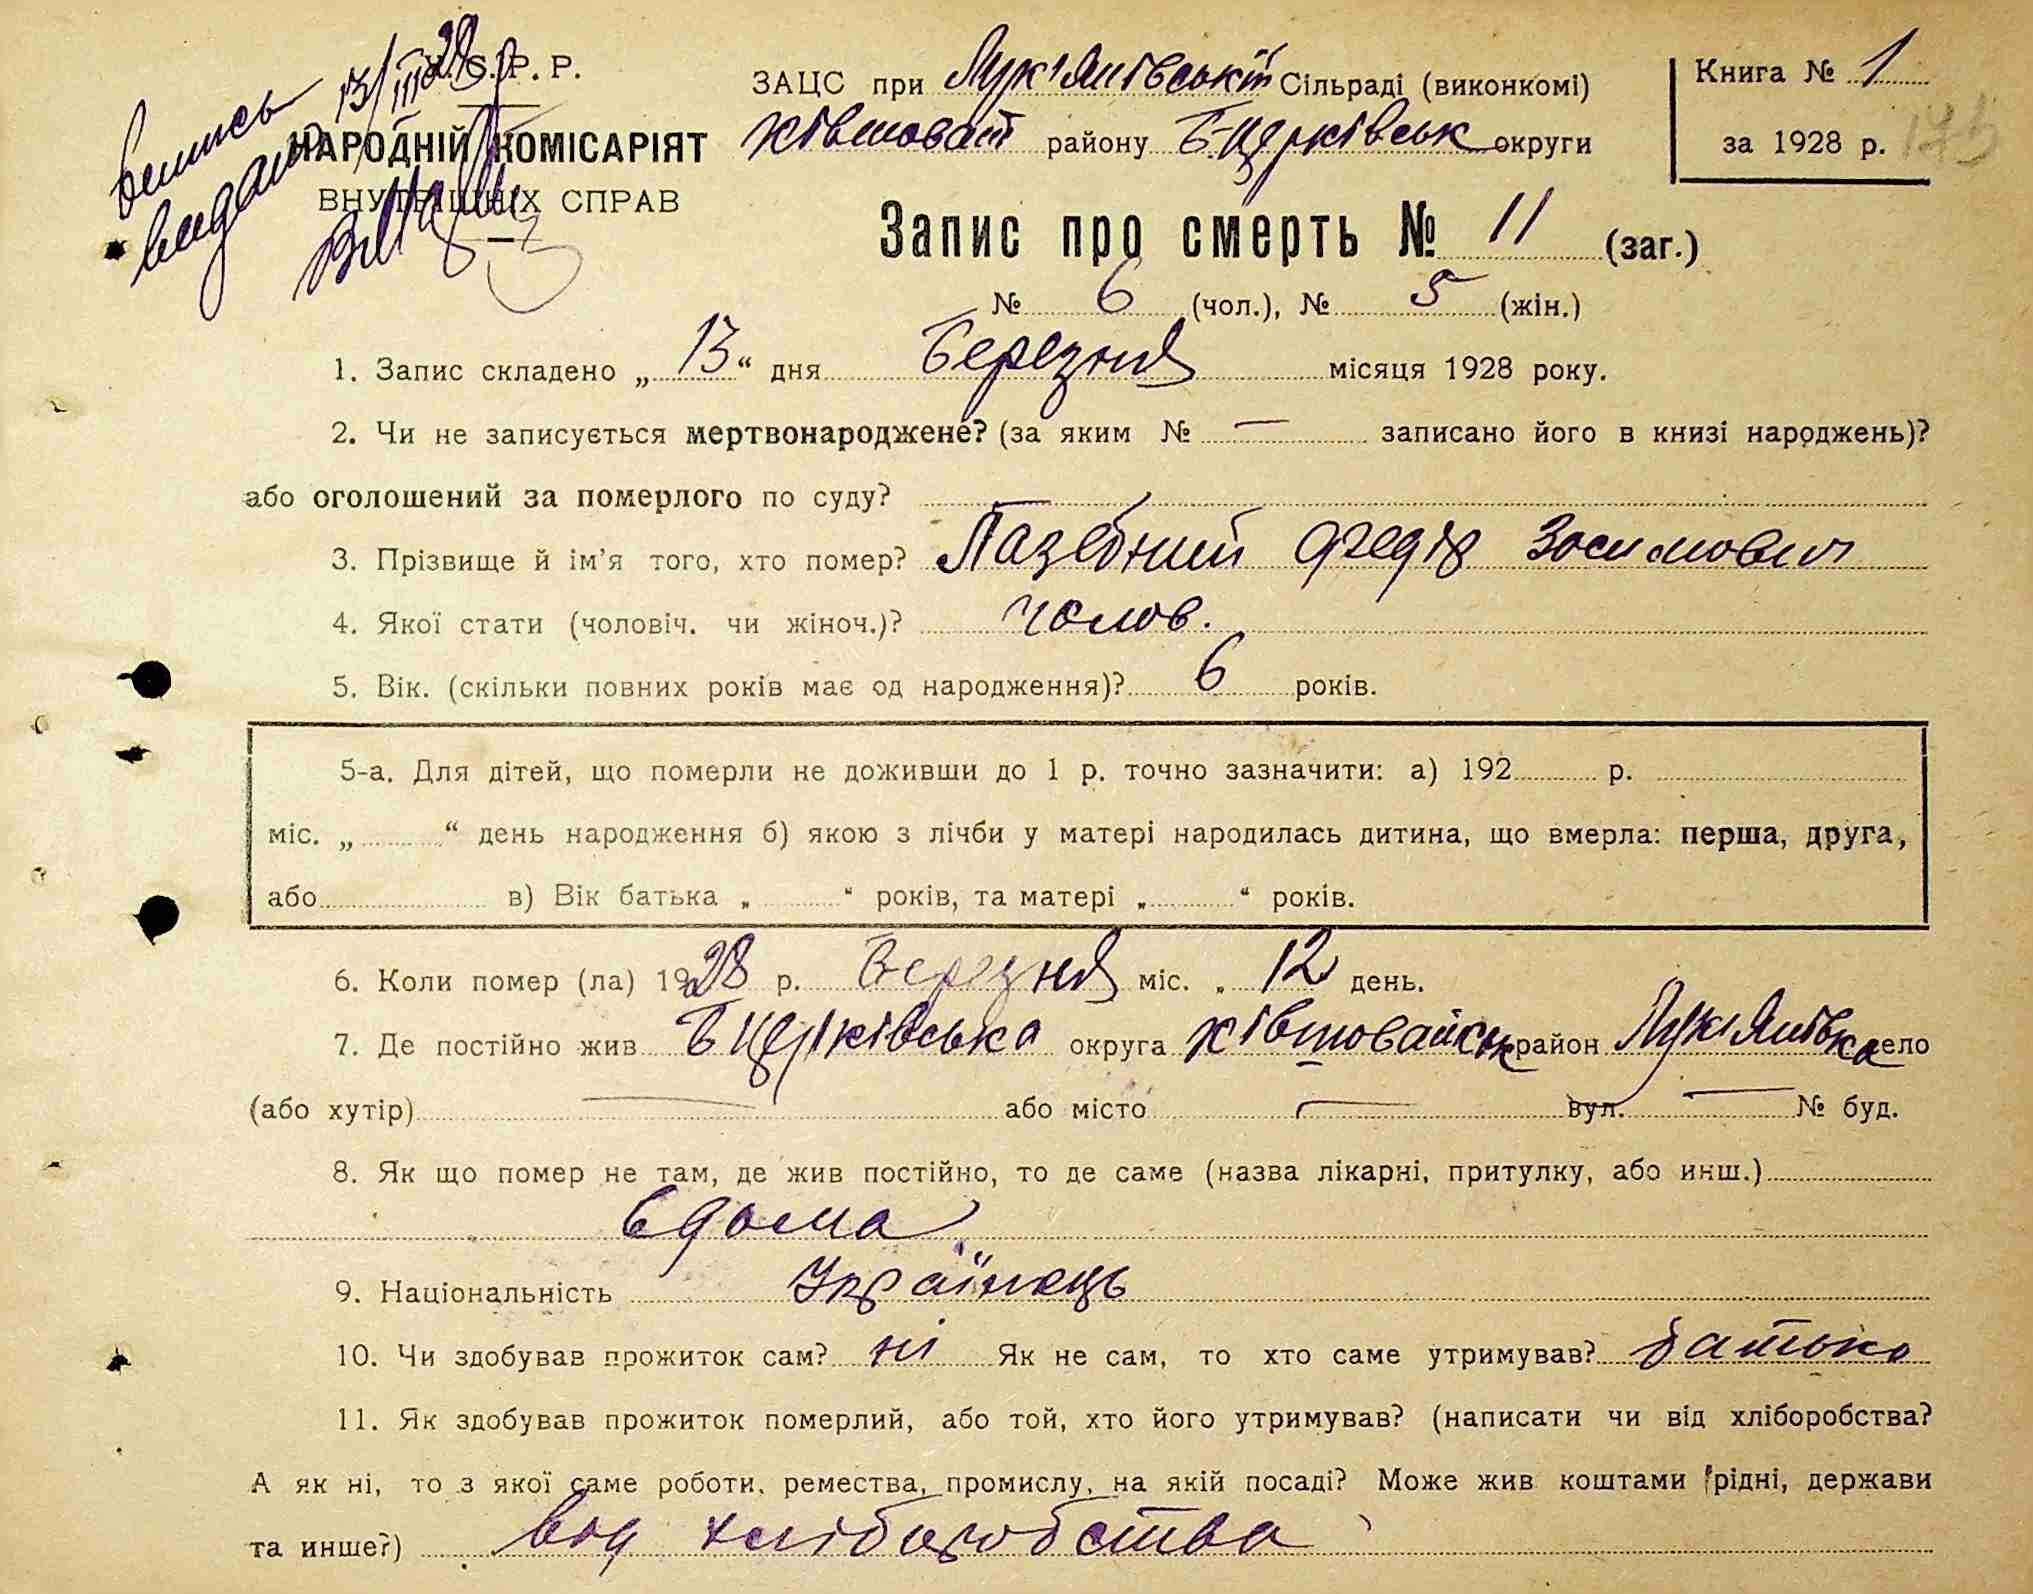 Випись
видано 13/III 28 р
У. С. Р. Р.
НАРОДНІЙ КОМІСАРІЯТ
ВНУТРІШНІХ СПРАВ
ЗАЦС при Лук'янівській Сільраді (виконкомі)
Жівтоват району Б-Церківськ округи
Книга № 1
за 1928 р.
Запис про смерть № 11 (заг.)
№ 6 (чол.), № 5 (жін.)
1. Запис складено „ 13 “ дня Березня місяця 1928 року.
2. Чи не записується мертвонароджене? (за яким № — записано його в книзі народжень)?
або оголошений за померлого по суду?
3. Прізвище й ім'я того, хто помер? Пазебний Федір Зосимович
4. Якої стати (чоловіч. чи жіноч.)? чолов.
5. Вік. (скільки повних років має од народження)? 6 років.
5-а. Для дітей, що померли не доживши до 1 р. точно зазначити: а) 192 р.
міс. „ “ день народження б) якою з лічби у матері народилась дитина, що вмерла: перша, друга,
або в) Вік батька „ “ років, та матері „ “ років.
6. Коли помер (ла) 1928 р. Березня міс. „ 12 день.
7. Де постійно жив Б Церківська округа Жівтовайськ район Лук'янівка село
(або хутір) — або місто — вул. — № буд.
8. Як що помер не там, де жив постійно, то де саме (назва лікарні, притулку, або инш.)
вдома
9. Національність Українець
10. Чи здобував прожиток сам? ні Як не сам, то хто саме утримував? батько
11. Як здобував прожиток померлий, або той, хто його утримував? (написати чи від хліборобства?
А як ні, то з якої саме роботи, ремества, промислу, на якій посаді? Може жив коштами рідні, держави
та инше?) вод хліборобства